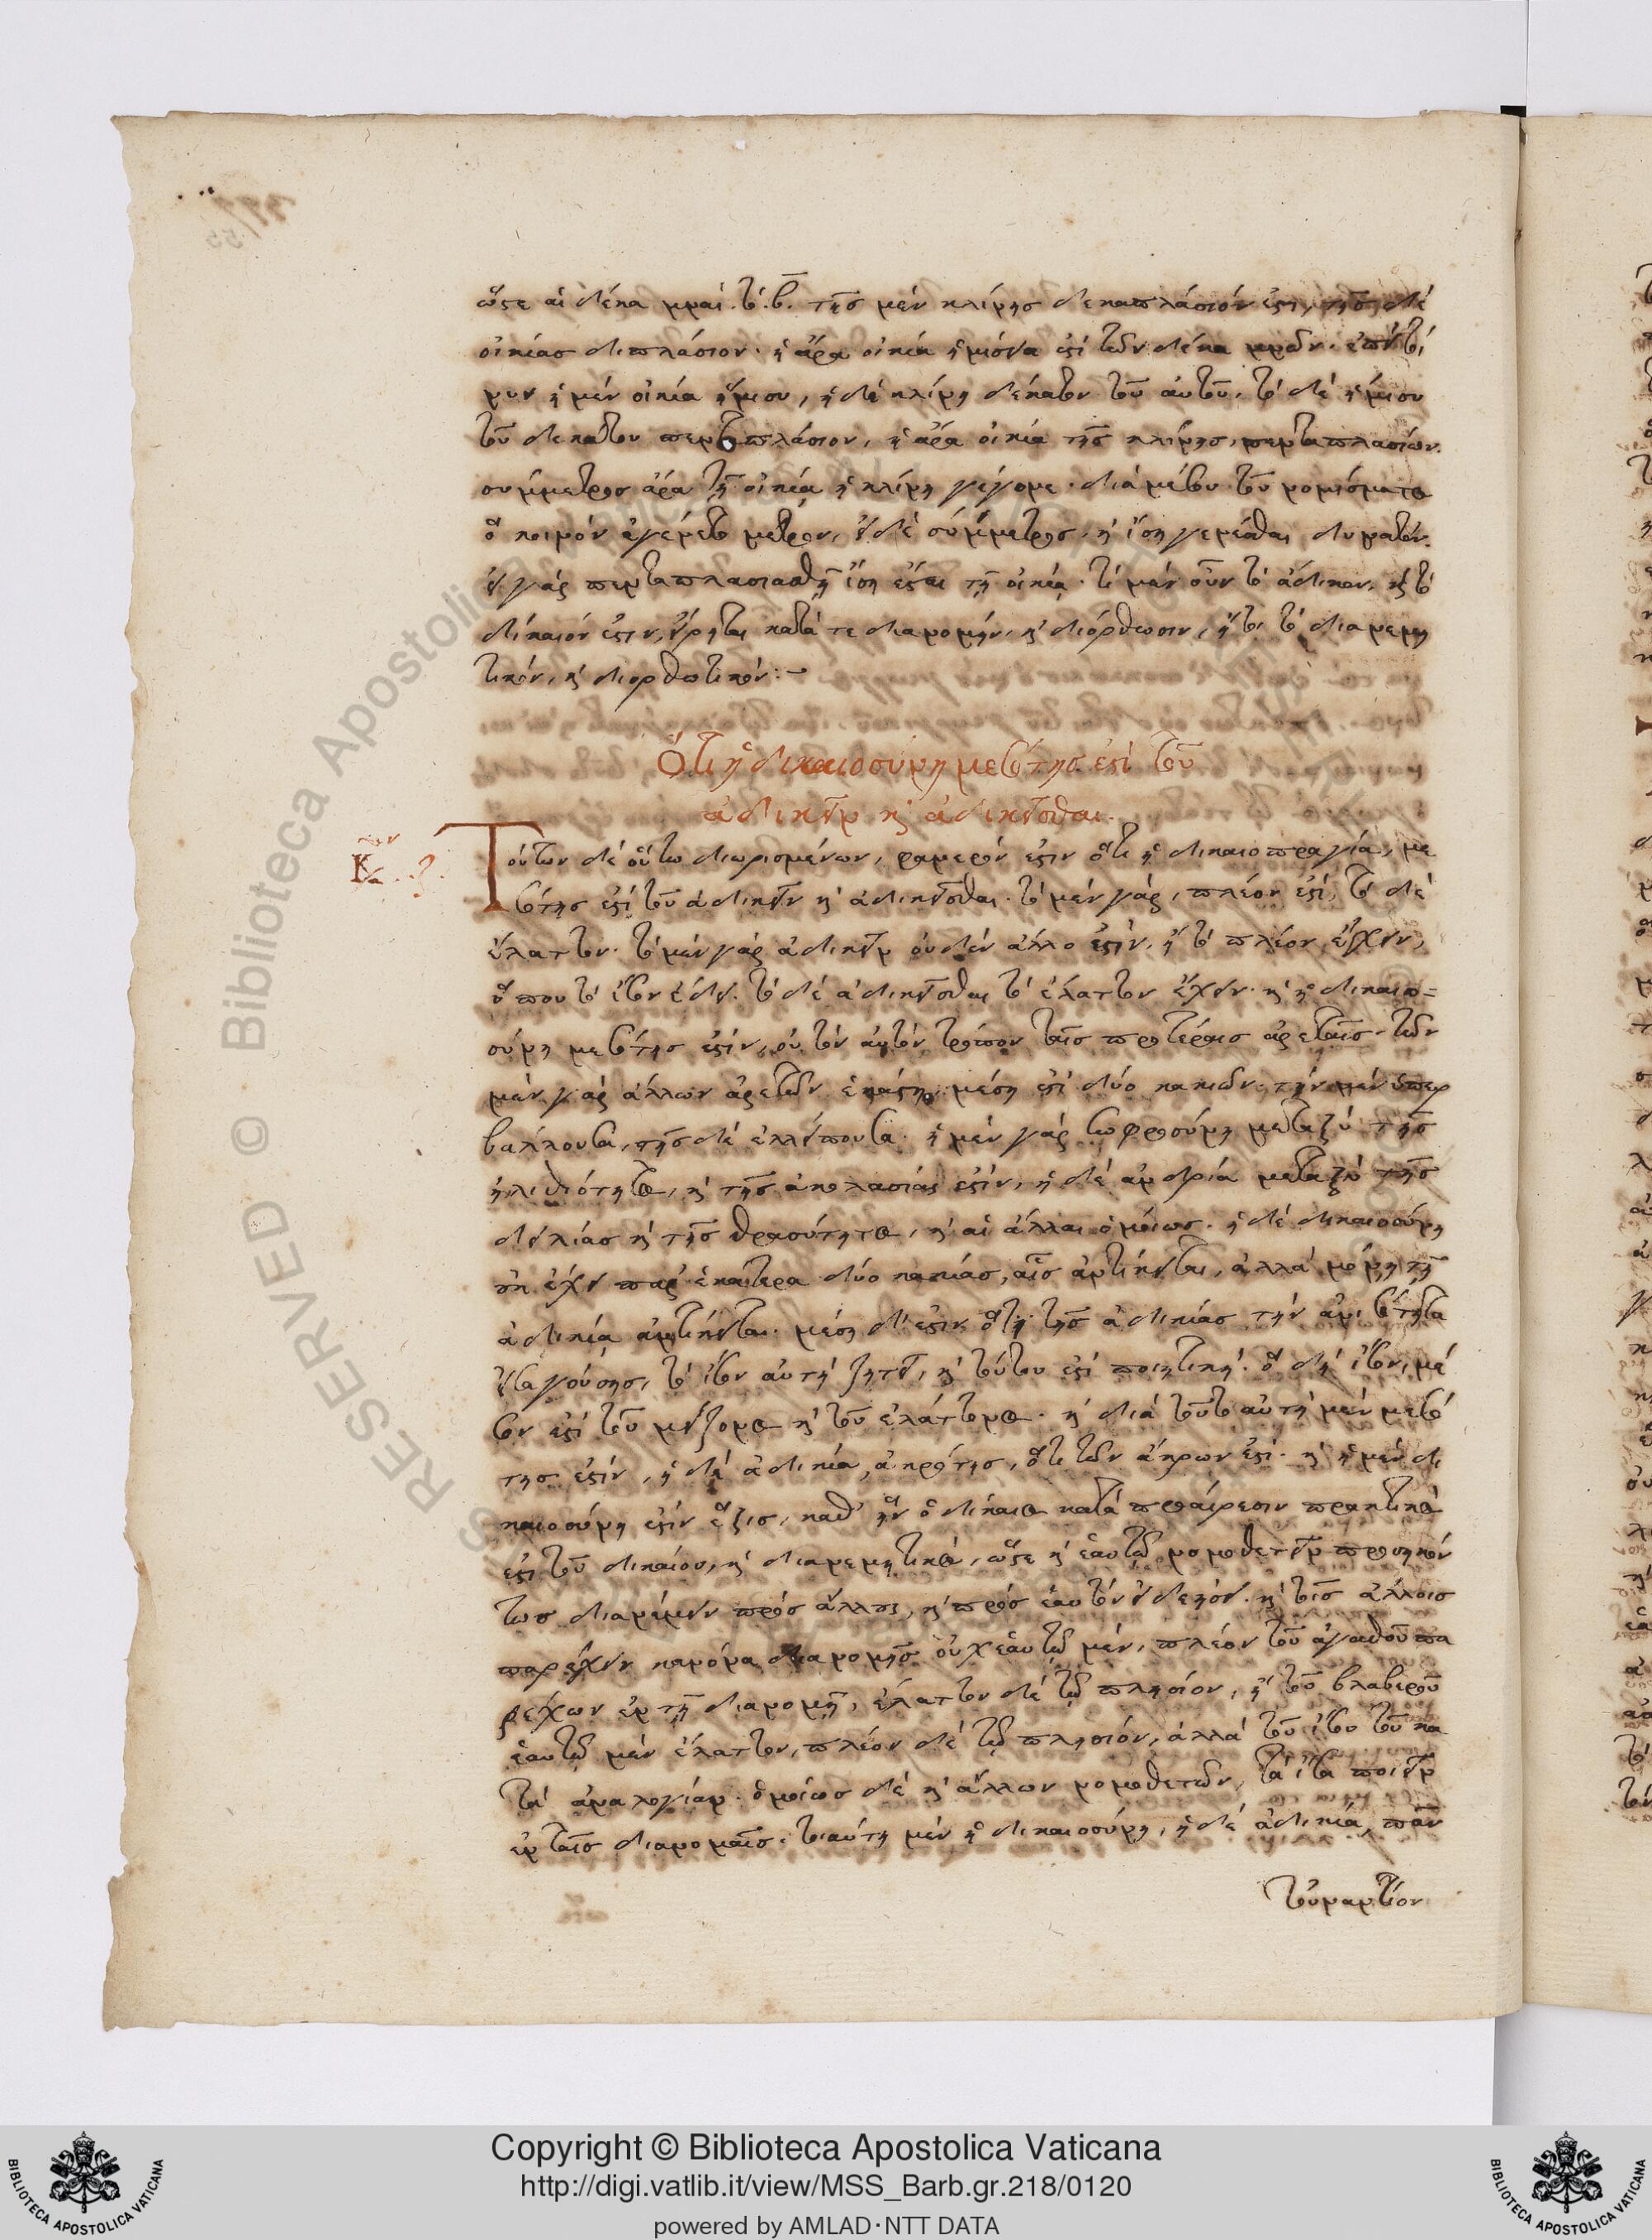 ὥστε αἱ δέκα μναῖ τὸ β. τῆς μὲν κλίνης δεκαπλάσιόν ἐστι, τῆς δὲ
οἰκίας διπλάσιον. ἡ ἄρα οἰκία ἡμίσεια ἐστὶ τῶν δέκα μνῶν. ἐπεὶ τοί
νυν ἡ μὲν οἰκία ἥμισυ, ἡ δὲ κλίνη δέκατον τοῦ αὐτοῦ, τὸ δὲ ἥμισυ
τοῦ δεκάτου πενταπλάσιον, ἡ ἄρα οἰκία τῆς κλίνης, πενταπλασίων.
σύμμετρος ἄρα τῇ οἰκίᾳ ἡ κλίνη γέγονε. διὰ μέσου τοῦ νομίσματος
ὃ κοινὸν ἐγένετο μέτρον, εἰ δὲ σύμμετρος, καὶ ἴση γενέσθαι δυνατόν.
εἰ γὰρ πενταπλασιασθῇ ἴση ἔσται τῇ οἰκίᾳ. τί μὲν οὖν τὸ ἄδικον, καὶ τὸ
δίκαιόν ἐστιν, εἴρηται κατά τε διανομὴν, καὶ διόρθωσιν, ἤτοι τὸ διανεμη
τικόν, καὶ διορθωτικόν:~
Ὅτι ἡ δικαιοσύνη μεσότης ἐστὶ τοῦ
ἀδικεῖν καὶ ἀδικεῖσθαι.
Τούτων δὲ οὕτω διωρισμένων, φανερὸν ἐστιν ὅτι ἡ δικαιοπραγία, με
σότης ἐστὶ τοῦ ἀδικεῖν καὶ ἀδικεῖσθαι. τὸ μὲν γὰρ, πλέον ἐστί, τὸ δὲ
ἔλαττον. τὸ μὲν γὰρ ἀδικεῖν οὐδὲν ἄλλο ἐστὶν, ἢ τὸ πλέον ἔχειν,
ὅπου τὸ ἴσον ἔδει. τὸ δὲ ἀδικεῖσθαι τὸ ἔλαττον ἔχειν. καὶ ἡ δικαιο=
σύνη μεσότης ἐστὶν, οὐ τὸν αὐτὸν τρόπον ταῖς προτέραις ἀρεταῖς. τῶν
μὲν γὰρ ἄλλων ἀρετῶν ἑκάστη μέση ἐστὶ δύο κακιῶν. τὴν μὲν ὑπερ
βάλλουσα, τῆς δὲ ἐλλείπουσα. ἡ μὲν γὰρ σωφροσύνη μεταξὺ τῆς
ἠλιθιότητος, καὶ τῆς ἀκολασίας ἐστίν, ἡ δὲ ἀνδρία μεταξὺ τῆς
δειλίας καὶ τῆς θρασύτητος, καὶ αἱ ἄλλαι ὁμοίως. ἡ δὲ δικαιοσύνη
οὐκ ἔχει παρ' ἑκάτερα δύο κακίας, αἷς ἀντίκειται, ἀλλὰ μόνῃ τῇ
ἀδικίᾳ ἀντίκειται. μέση δ' ἐστὶν ὅτι τῆς ἀδικίας τὴν ἀνισότητα
εἰσαγούσης, τὸ ἴσον αὐτὴ ζητεῖ, καὶ τούτου ἐστὶ ποιητική. ὃ δὴ ἴσον, μέ
σον ἐστὶ τοῦ μείζονος καὶ τοῦ ἐλάττονος. καὶ διὰ τοῦτο αὐτὴ μὲν μεσό
της ἐστίν, ἡ δὲ ἀδικία, ἀκρότης, ὅτι τῶν ἄκρων ἐστί. καὶ ἡ μὲν δι
καιοσύνη ἐστὶν ἕξις, καθ' ἣν ὁ δίκαιος κατὰ προαίρεσιν πρακτικός
ἐστι τοῦ δικαίου, καὶ διανεμητικός, ὥστε καὶ ἑαυτῷ νομοθετεῖν προσηκόν
τως διανέμειν πρὸς ἄλλους, καὶ πρὸς ἑαυτὸν καὶ τοῖς ἄλλοις
παρέχειν κανόνα διανομῆς οὐχ ἑαυτῷ μὲν, πλέον τοῦ ἀγαθοῦ πα
ρέχων ἐν τῇ διανομῇ, ἔλαττον δὲ τῷ πλησίον, ἢ τοῦ βλαβεροῦ
ἑαυτῷ μὲν ἔλαττον, πλέον δὲ τῷ πλησίον, ἀλλὰ τοῦ ἴσου τοῦ κα
τὰ ἀναλογίαν. ὁμοίως δὲ καὶ ἄλλων νομοθετῶν, τὰ ἴσα ποιεῖν
ἐν ταῖς διανομαῖς. τοιαύτη μὲν ἡ δικαιοσύνη, ἡ δὲ ἀδικία, πᾶν
τοὐναντίον
Copyright © Biblioteca Apostolica Vaticana
http://digi.vatlib.it/view/MSS_Barb.gr.218/0120
powered by AMLAD·NTT DATA